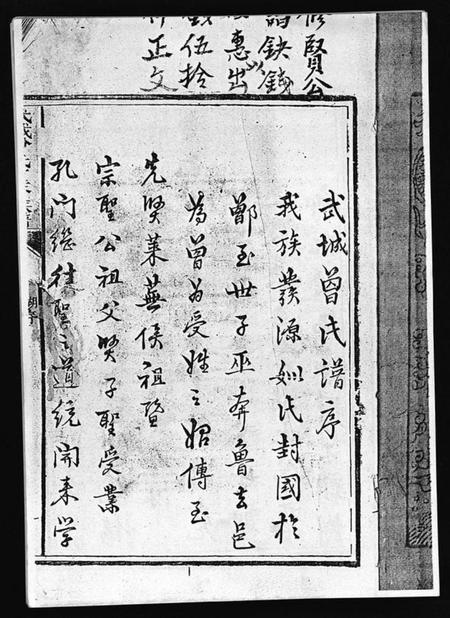 賢公
鈌錢
惠出
錢伍拾
正文
武城曾氏譜序
我族發源姒氏封國於
鄫至世子巫奔魯去邑
為曾為受姓之始傳至
先賢萊蕪侯祖暨
宗聖公祖父賢子聖受業
孔門繼往聖之道統開来学